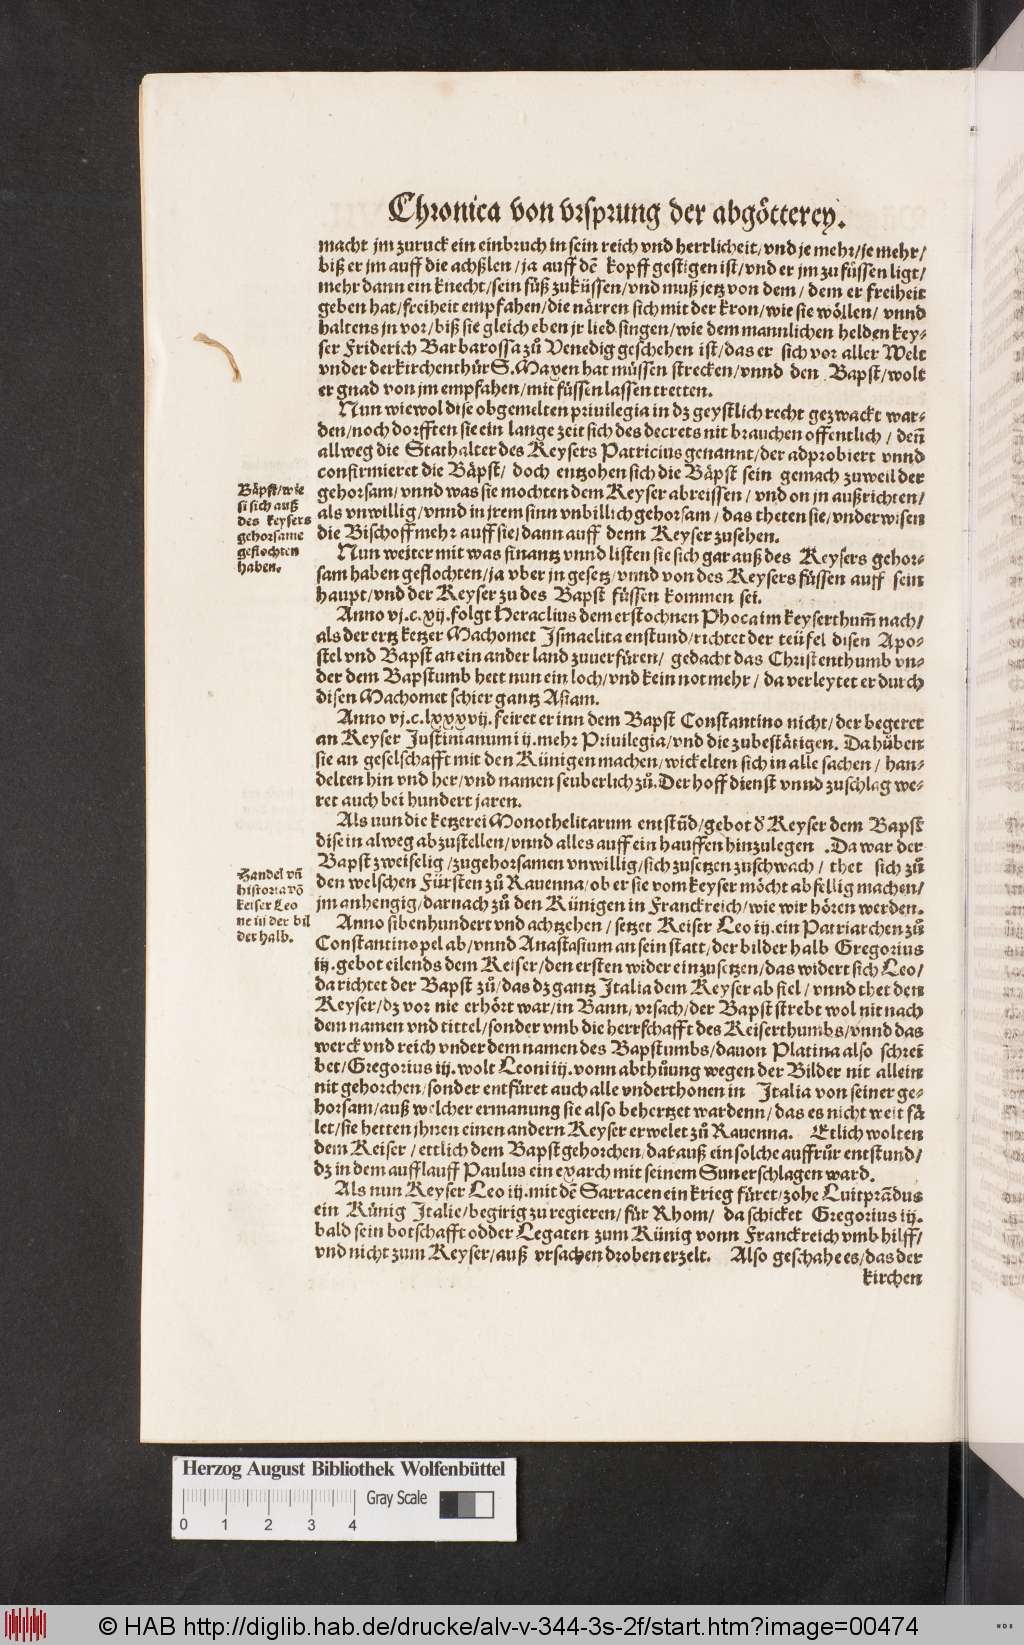 Chronica von vrsprung der abgötterey.
macht jm zuruck ein einbruch in sein reich vnd herrlicheit/vnd je mehr/je mehr/
biß er jm auff die achßlen/ja auff dē kopff gestigen ist/vnd er jm zu füssen ligt/
mehr dann ein knecht/sein füß zuküssen/vnd muß jetz von dem/dem er freiheit
geben hat/freiheit empfahen/die närren sich mit der kron/wie sie wöllen/vnnd
haltens jn vor/biß sie gleich eben jr lied singen/wie dem mannlichen helden key-
ser Friderich Barbarossa zů Venedig geschehen ist/das er sich vor aller Welt
vnder der kirchenthür S. Maxen hat müssen strecken/vnnd den Bapst/wolt
er gnad von jm empfahen/mit füssen lassen tretten.
Nun wiewol dise obgemelten priuilegia in dz geystlich recht gezwackt war-
den/noch dorfften sie ein lange zeit sich des decrets nit brauchen offentlich/deñ
allweg die Stathalter des Keysers Patricius genannt/der adprobiert vnnd
confirmieret die Bäpst/doch entzohen sich die Bäpst sein gemach zuweil der
gehorsam/vnnd was sie mochten dem Keyser abreissen/vnd on jn außrichten/
als vnwillig/vnnd in jrem sinn vnbillich gehorsam/das theten sie/vnderwisen
die Bischoff mehr auff sie/dann auff denn Keyser zusehen.
Bäpst/wie
si sich auß
des keysers
gehorsame
geflochten
haben.
Nun weiter mit was finantz vnnd listen sie sich gar auß des Keysers gehor-
sam haben geflochten/ja vber jn gesetz/vnnd von des Keysers füssen auff sein
haupt/vnd der Keyser zu des Bapst füssen kommen sei.
Anno vj.c.xij. folgt Heraclius dem erstochnen Phoca im keyserthum̃ nach/
als der ertz ketzer Machomet Ismaelita enstund/richtet der teüfel disen Apo-
stel vnd Bapst an ein ander land zuuerfüren/gedacht das Christenthumb vn-
der dem Bapstumb hett nun ein loch/vnd kein not mehr/da verleytet er durch
disen Machomet schier gantz Asiam.
Anno vj.c.lxxxvij. feiret er inn dem Bapst Constantino nicht/der begeret
an Keyser Justinianum ij. mehr Priuilegia/vnd die zubestätigen. Da hüben
sie an geselschafft mit den Künigen machen/wickelten sich in alle sachen/han-
delten hin vnd her/vnd namen seuberlich zů. Der hoff dienst vnnd zuschlag we-
ret auch bei hundert jaren.
Als nun die ketzerei Monothelitarum entstůd/gebot d' Keyser dem Bapst
dise in alweg abzustellen/vnnd alles auff ein hauffen hinzulegen. Da war der
Bapst zweiselig/zugehorsamen vnwillig/sich zusetzen zuschwach/thet sich zů
den welschen Fürsten zů Rauenna/ob er sie vom keyser möcht abfellig machen/
jm anhengig/darnach zů den Künigen in Franckreich/wie wir hören werden.
Handel vñ
historia võ
keiser Leo
ne iij der bil
der halb.
Anno sibenhundert vnd achtzehen/setzet Keiser Leo iij. ein Patriarchen zů
Constantinopel ab/vnnd Anastasium an sein statt/der bilder halb Gregorius
iij. gebot eilends dem Keiser/den ersten wider einzusetzen/das widert sich Leo/
da richtet der Bapst zů/das dz gantz Italia dem Keyser abfiel/vnnd thet den
Keyser/dz vor nie erhört war/in Bann/vrsach/der Bapst strebt wol nit nach
dem namen vnd tittel/sonder vmb die herrschafft des Keiserthumbs/vnnd das
werck vnd reich vnder dem namen des Bapstumbs/dauon Platina also schrei
bet/Gregorius iij. wolt Leoni iij. vonn abthůung wegen der Bilder nit allein
nit gehorchen/sonder entfüret auch alle vnderthonen in Italia von seiner ge-
horsam/auß welcher ermanung sie also behertzet wardenn/das es nicht weit fä
let/sie hetten jhnen einen andern Keyser erwelet zů Rauenna. Etlich wolten
dem Keiser/ettlich dem Bapst gehorchen/darauß ein solche auffrůr entstund/
dz in dem aufflauff Paulus ein exarch mit seinem Sun erschlagen ward.
Als nun Keyser Leo iij. mit dē Sarracen ein krieg füret/zohe Luitprãdus
ein Künig Italie/begirig zu regieren/für Rhom/da schicket Gregorius iij.
bald sein botschafft odder Legaten zum Künig vonn Franckreich vmb hilff/
vnd nicht zum Keyser/auß vrsachen droben erzelt. Also geschahe es/das der
kirchen
Herzog August Bibliothek Wolfenbüttel
Gray Scale
0 1 2 3 4
© HAB http://diglib.hab.de/drucke/alv-v-344-3s-2f/start.htm?image=00474